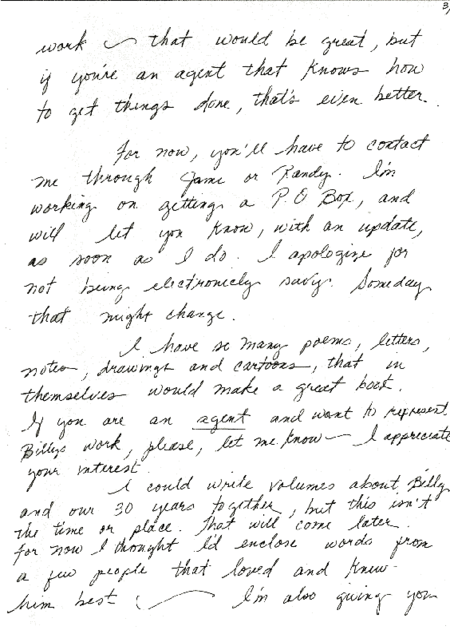 3,
work — that would be great, but
if you're an agent that knows how
to get things done, that's even better.
For now, you'll have to contact
me through Jame or Randy. I'm
working on getting a P.O Box, and
will let you know, with an update,
as soon as I do. I apologize for
not being electronicly savy. Someday
that might change.
I have so many poems, letters,
notes, drawings and cartoons, that in
themselves would make a great book.
If you are an agent and want to represent
Billys work, please, let me know — I appreciate
your interest.
I could write volumes about Billy
and our 30 years together, but this isn't
the time or place. That will come later.
For now I thought I'd enclose words from
a few people that loved and knew
him best : — I'm also giving you